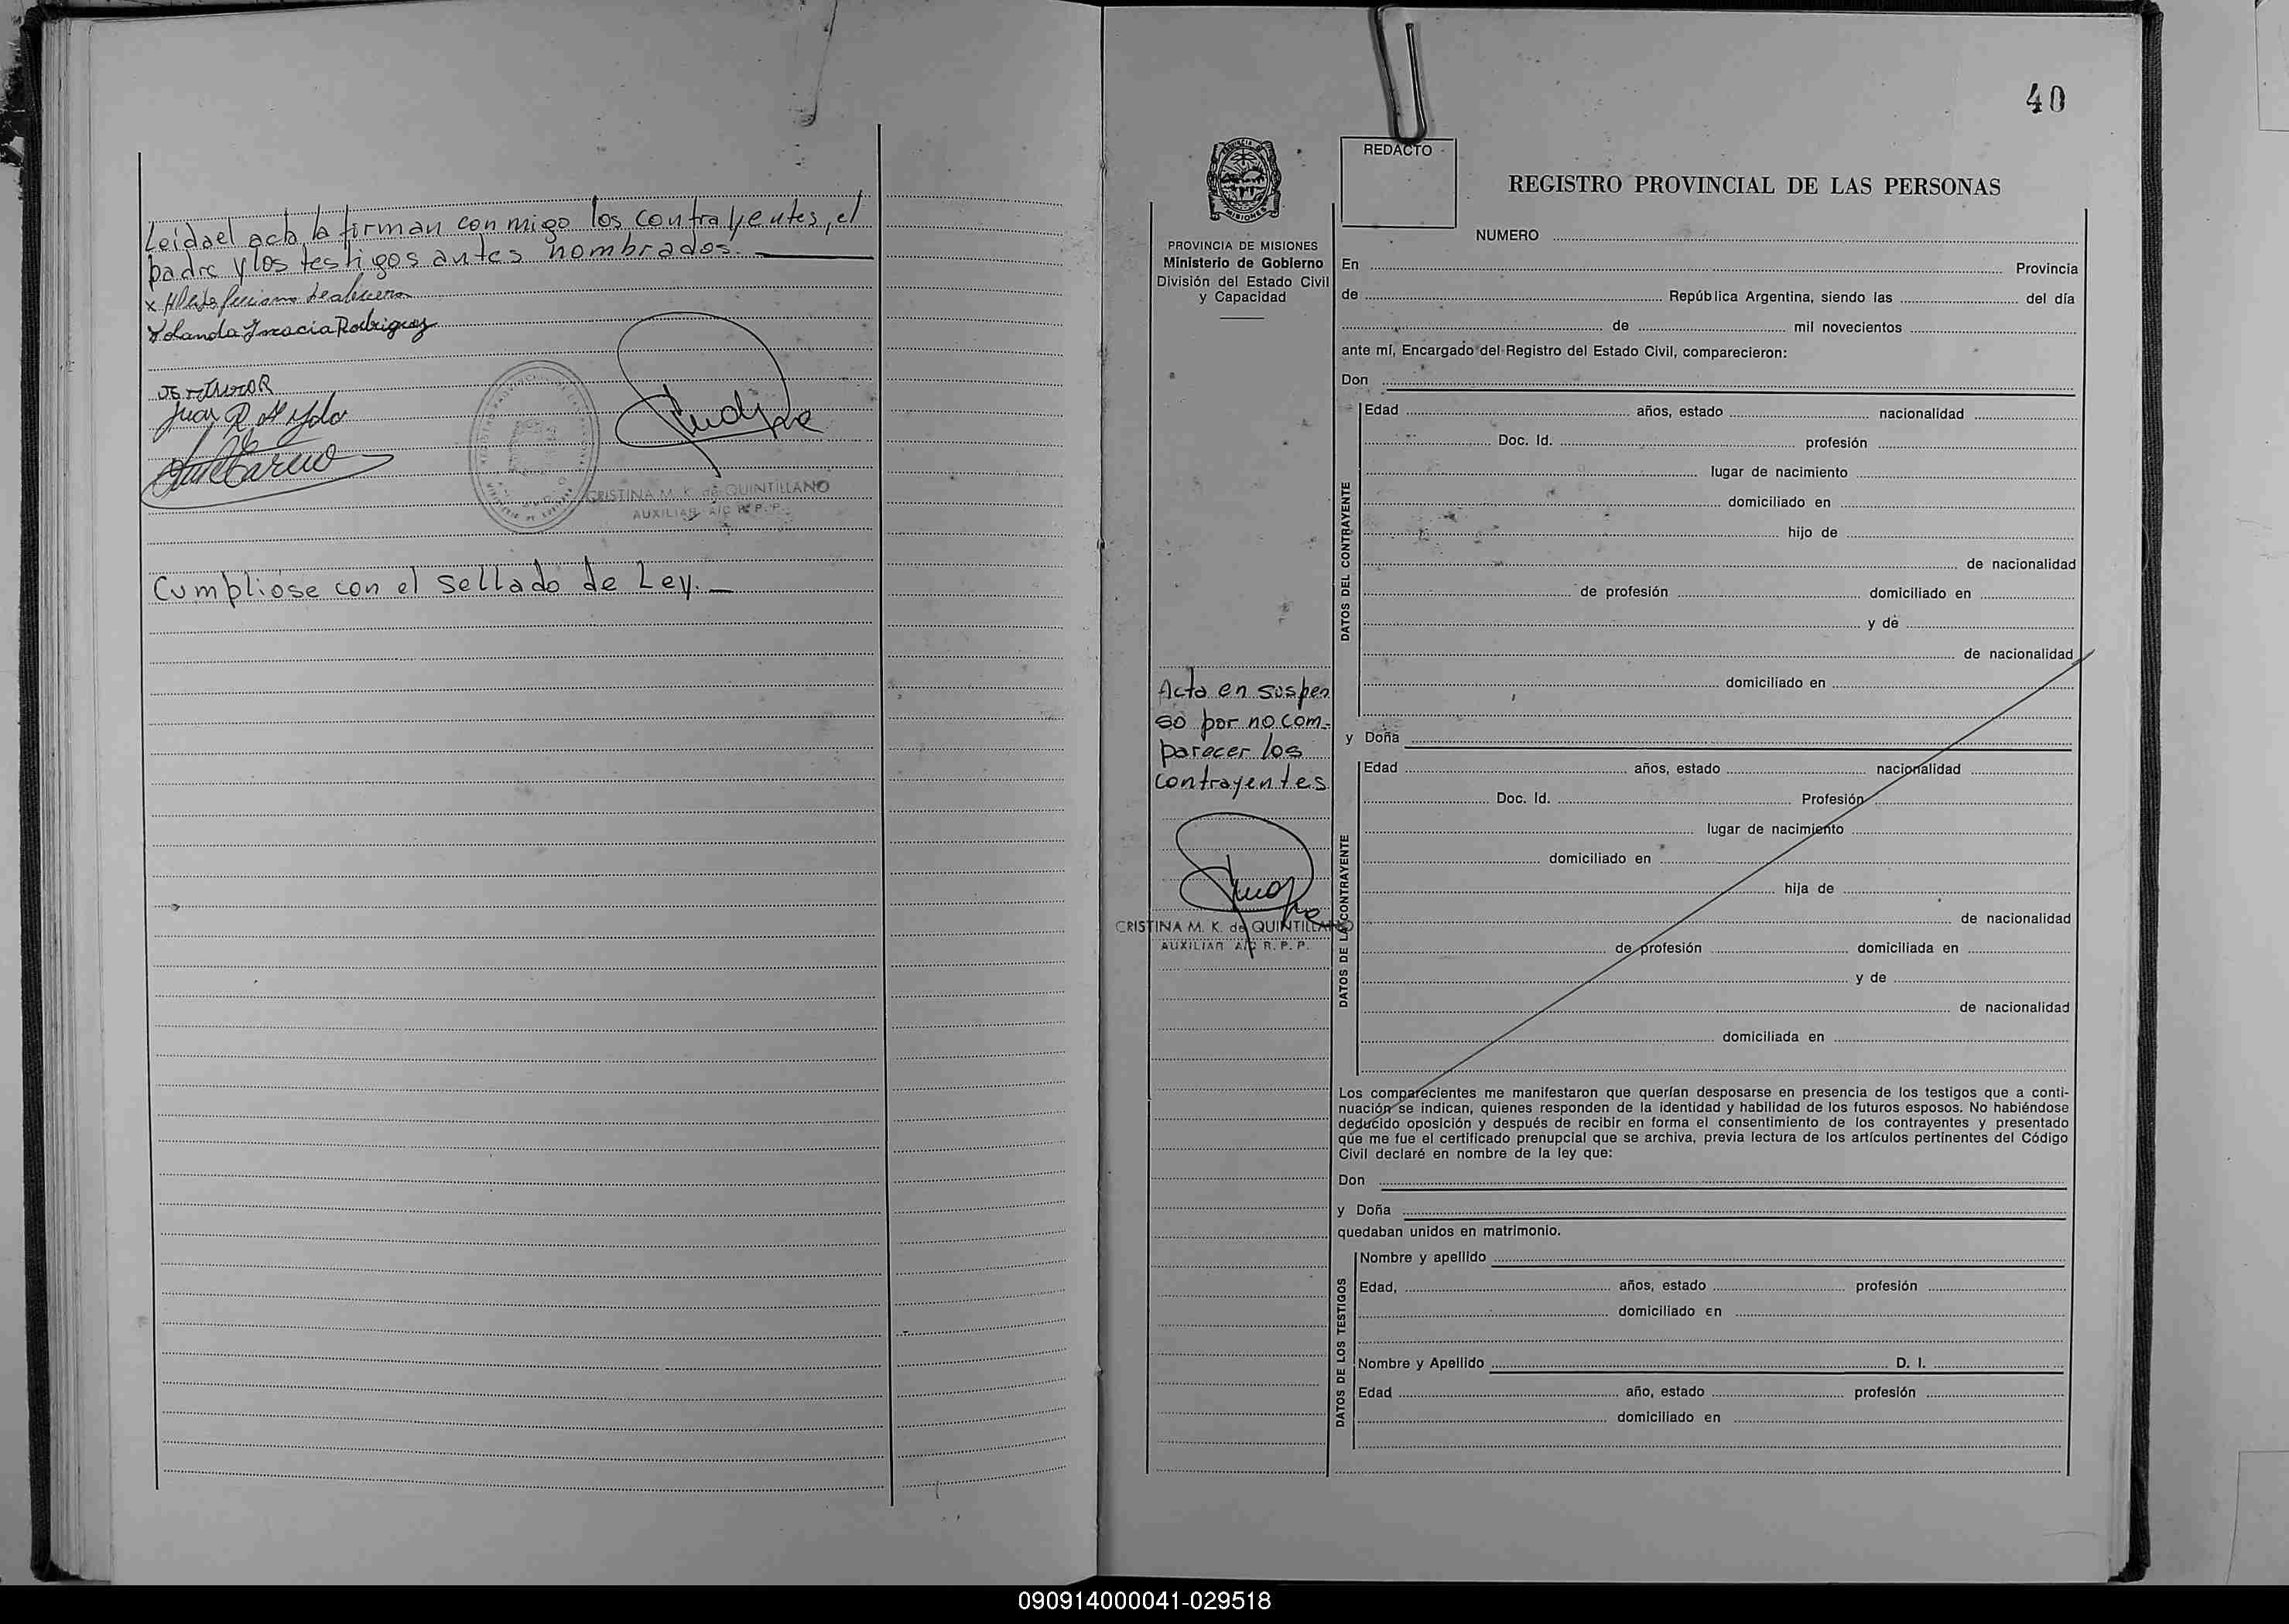 Leida el acta, la firman con migo los contrayentes, el
padre y los testigos antes nombrados.
Yolanda Rodriguez
Juan R.
CRISTINA M. K. de QUINTILLANO
AUXILIAR A/C R. P. P.
Cumplióse con el sellado de Ley.
40
REDACTO
REGISTRO PROVINCIAL DE LAS PERSONAS
MISIONES
PROVINCIA DE MISIONES
Ministerio de Gobierno
División del Estado Civil
y Capacidad
Acta en suspen
so por no com-
parecer los
contrayentes
CRISTINA M. K. de QUINTILLANO
AUXILIAR A/C R. P. P.
NUMERO
En Provincia
de República Argentina, siendo las del día
de mil novecientos
ante mí, Encargado del Registro del Estado Civil, comparecieron:
Don
DATOS DEL CONTRAYENTE
Edad años, estado nacionalidad
Doc. Id. profesión
lugar de nacimiento
domiciliado en
hijo de
de nacionalidad
de profesión domiciliado en
y de
de nacionalidad
domiciliado en
y Doña
DATOS DE LA CONTRAYENTE
Edad años, estado nacionalidad
Doc. Id. Profesión
lugar de nacimiento
domiciliado en
hija de
de nacionalidad
de profesión domiciliada en
y de
de nacionalidad
domiciliada en
Los comparecientes me manifestaron que querían desposarse en presencia de los testigos que a conti-
nuación se indican, quienes responden de la identidad y habilidad de los futuros esposos. No habiéndose
deducido oposición y después de recibir en forma el consentimiento de los contrayentes y presentado
que me fue el certificado prenupcial que se archiva, previa lectura de los artículos pertinentes del Código
Civil declaré en nombre de la ley que:
Don
y Doña
quedaban unidos en matrimonio.
DATOS DE LOS TESTIGOS
Nombre y apellido
Edad, años, estado profesión
domiciliado en
Nombre y Apellido D. I.
Edad año, estado profesión
domiciliado en
090914000041-029518